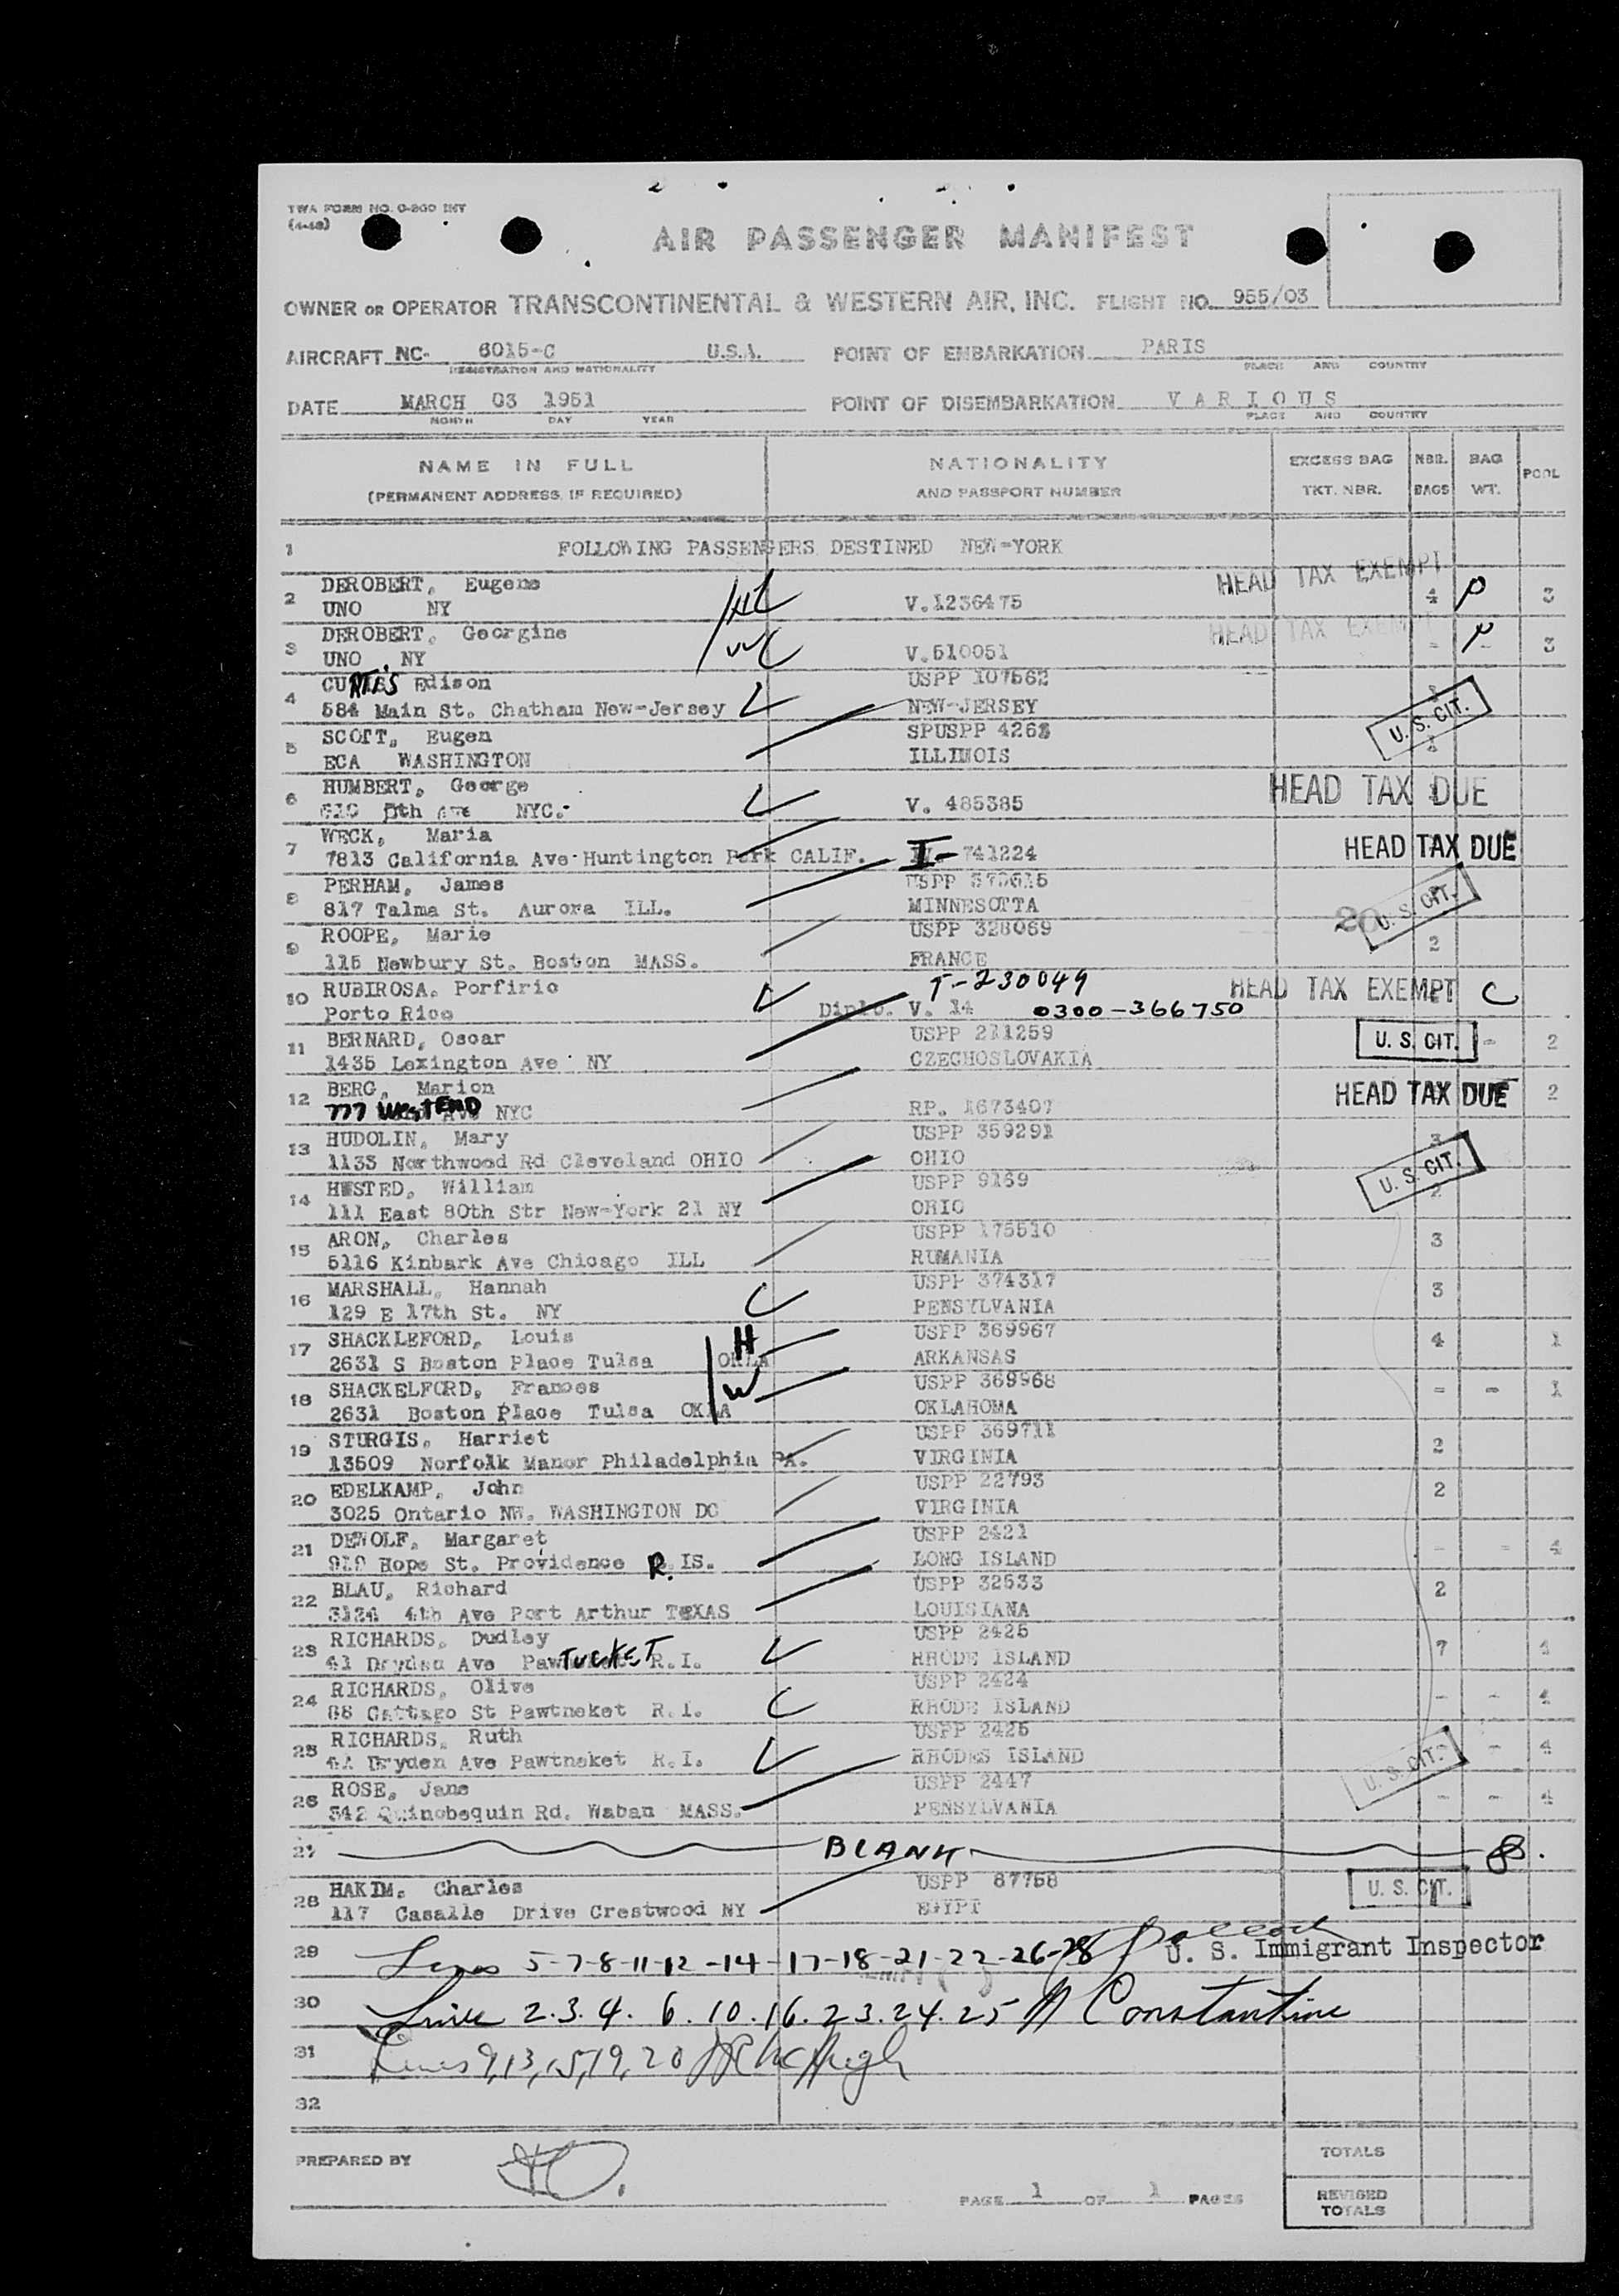 TWA FORM NO. 0-200 INT
AIR PASSENGER MANIFEST
OWNER OR OPERATOR TRANSCONTINENTAL & WESTERN AIR, INC. FLIGHT NO. 955/03
AIRCRAFT NC- 6015-C U.S.A. POINT OF EMBARKATION PARIS
REGISTRATION AND NATIONALITY PLACE AND COUNTRY
DATE MARCH 03 1951 POINT OF DISEMBARKATION VARIOUS
MONTH DAY YEAR PLACE AND COUNTRY
NAME IN FULL NATIONALITY EXCESS BAG NBR. BAG POOL
(PERMANENT ADDRESS, IF REQUIRED) AND PASSPORT NUMBER TKT. NBR. BAGS WT.
1 FOLLOWING PASSENGERS DESTINED NEW-YORK
HEAD TAX EXEMPT
2 DEROBERT, Eugene
UNO NY V.1236475 4 P 3
HEAD TAX EXEMPT
3 DEROBERT, Georgine
UNO. NY V.510051 - - 3
4 CURTIS Edison USPP 107562
584 Main St. Chatham New-Jersey NEW-JERSEY
U.S. CIT.
5 SCOTT, Eugen SPUSPP
ECA WASHINGTON ILLINOIS
6 HUMBERT, George HEAD TAX DUE
5th Ave NYC.- V. 485385
7 WECK, Maria HEAD TAX DUE
7813 California Ave Huntington Park CALIF. I- 741224
8 PERHAM, James USPP
817 Talma St. Aurora ILL. MINNESOTTA
20 U.S. CIT.
9 ROOPE, Marie USPP 328069 2
115 Newbury St. Boston MASS. FRANCE
T-230049
10 RUBIROSA, Porfirio HEAD TAX EXEMPT C
Porto Rico Diplo. V. 14 0300-366750
11 BERNARD, Oscar USPP 211259 U.S. CIT. - 2
1435 Lexington Ave NY CZECHOSLOVAKIA
12 BERG, Marion HEAD TAX DUE 2
777 WEST END NYC RP. 1673407
13 HUDOLIN, Mary USPP 359291 3
1133 Northwood Rd Cleveland OHIO OHIO
U.S. CIT.
14 HUSTED, William USPP 9169 2
111 East 80th Str New-York 21 NY OHIO
15 ARON, Charles USPP 175510 3
5116 Kinbark Ave Chicago ILL RUMANIA
16 MARSHALL, Hannah USPP 374317 3
129 E 17th St. NY PENSYLVANIA
17 SHACKLEFORD, Louis H USPP 369967 4 1
2631 S Boston Place Tulsa OKLA ARKANSAS
18 SHACKELFORD, Frances W USPP 369968 - - 1
2631 Boston Place Tulsa OKLA OKLAHOMA
19 STURGIS, Harriet USPP 369711 2
13509 Norfolk Manor Philadelphia PA. VIRGINIA
20 EDELKAMP, John USPP 22793 2
3025 Ontario NW. WASHINGTON DC VIRGINIA
21 DEWOLF, Margaret USPP 2421 - - 4
Hope St. Providence R. IS. LONG ISLAND
22 BLAU, Richard USPP 32533 2
4th Ave Port Arthur TEXAS LOUISIANA
23 RICHARDS, Dudley USPP 2425 7 4
41 Dryden Ave PawTUCKET R.I. RHODE ISLAND
24 RICHARDS, Olive USPP 2424 - - 4
St Pawtneket R.I. RHODE ISLAND
25 RICHARDS, Ruth USPP 2425 - 4
Dryden Ave Pawtneket R.I. RHODES ISLAND
U.S. CIT.
26 ROSE, Jane USPP 2447 - - 4
342 Quinobequin Rd. Waban MASS. PENSYLVANIA
27 BLANK
28 HAKIM, Charles USPP 87758 U.S. CIT.
117 Casalle Drive Crestwood NY EGYPT
29 Lines 5-7-8-11-12-14-17-18-21-22-26-28 U. S. Immigrant Inspector
30 Line 2.3.4. 6.10.16.23.24.25 Constantine
31 Lines 9,13,15,19,20 McHugh
32
PREPARED BY TOTALS
PAGE 1 OF 1 PAGES REVISED
TOTALS